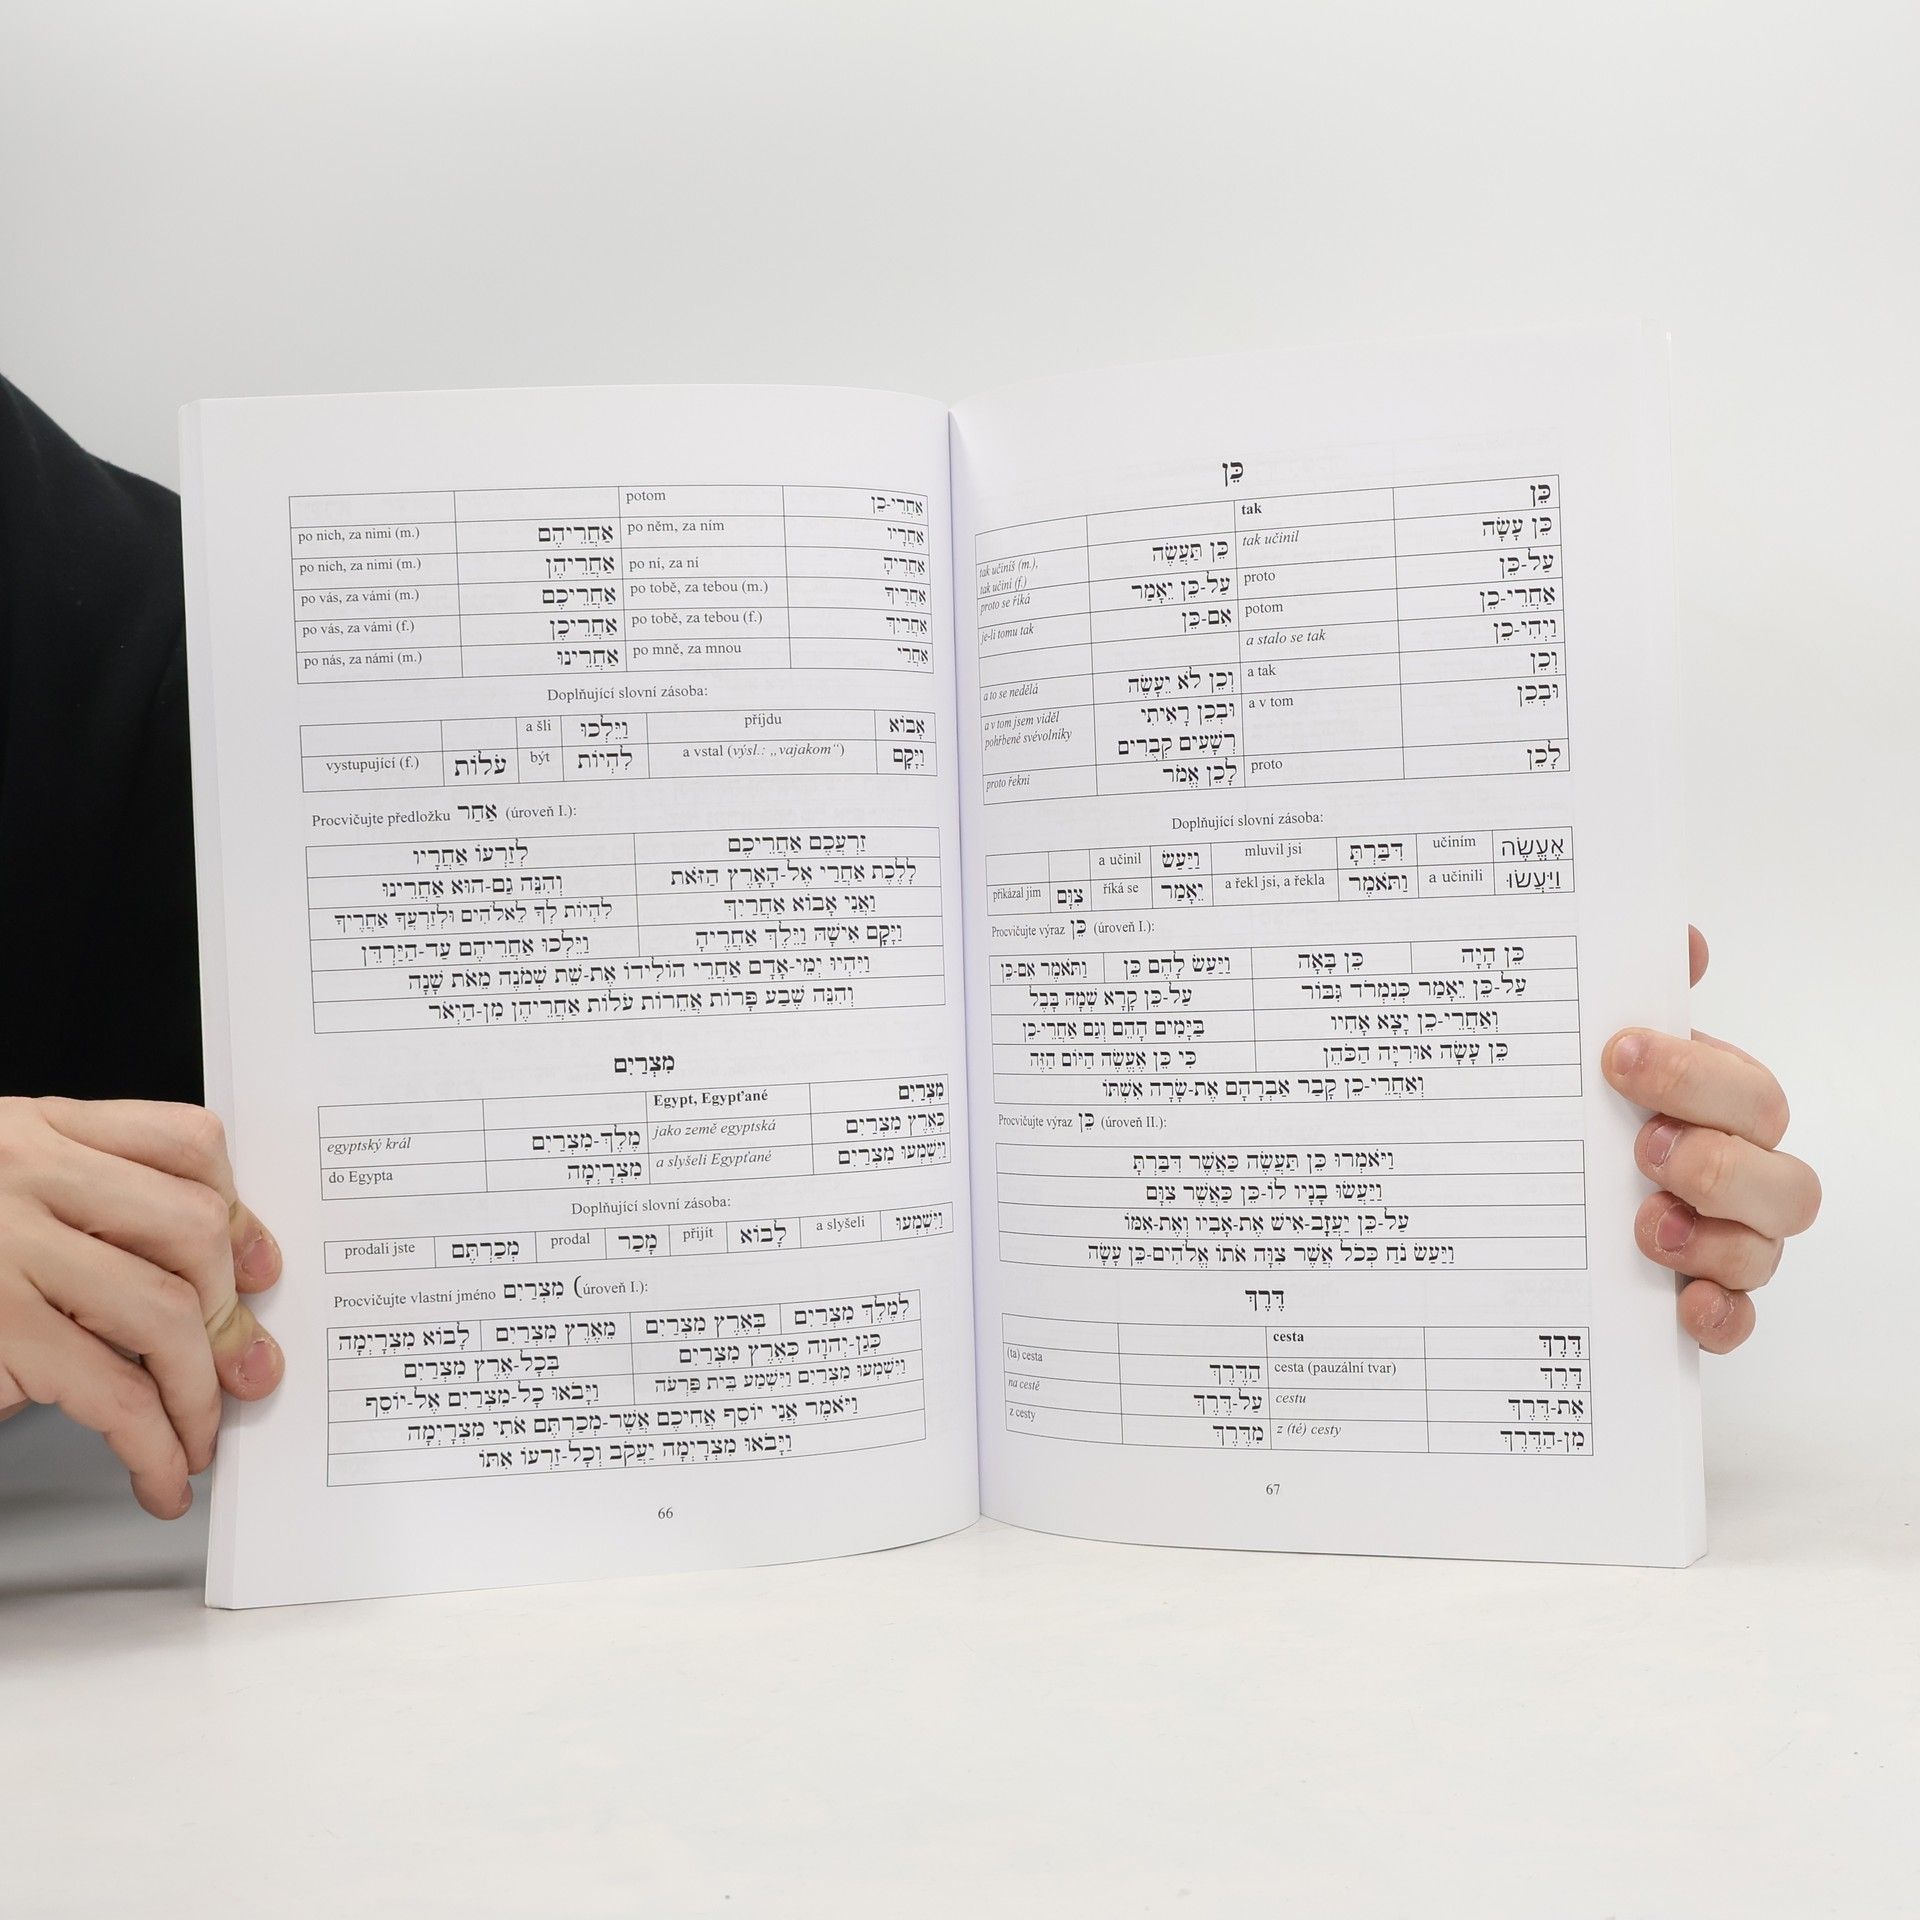 potom אַחֲרֵי-כֵן
po nich, za nimi (m.) אַחֲרֵיהֶם po něm, za ním אַחֲרָיו
po nich, za nimi (m.) אַחֲרֵיהֶן po ní, za ní אַחֲרֶיהָ
po vás, za vámi (m.) אַחֲרֵיכֶם po tobě, za tebou (m.) אַחֲרֶיךָ
po vás, za vámi (f.) אַחֲרֵיכֶן po tobě, za tebou (f.) אַחֲרַיִךְ
po nás, za námi (m.) אַחֲרֵינוּ po mně, za mnou אַחֲרַי
Doplňující slovní zásoba:
a šli וַיֵּלְכוּ příjdu אָבוֹא
vystupující (f.) עֹלוֹת být לִהְיוֹת a vstal (výsl.: „vajakom“) וַיָּקָם
Procvičujte předložku אַחַר (úroveň I.):
לְזַרְעוֹ אַחֲרָיו זַרְעֲכֶם אַחֲרֵיכֶם
וְהִנֵּה גַם-הוּא אַחֲרֵינוּ לָלֶכֶת אַחֲרַי אֶל-הָאָרֶץ הַזֹּאת
לִהְיוֹת לְךָ לֵאלֹהִים וּלְזַרְעֲךָ אַחֲרֶיךָ וַאֲנִי אָבוֹא אַחֲרַיִךְ
וַיֵּלְכוּ אַחֲרֵיהֶם עַד-הַיַּרְדֵּן וַיָּקָם אִישָׁהּ וַיֵּלֶךְ אַחֲרֶיהָ
וַיִּהְיוּ יְמֵי-אָדָם אַחֲרֵי הוֹלִידוֹ אֶת-שֵׁת שְׁמֹנֶה מֵאֹת שָׁנָה
וְהִנֵּה שֶׁבַע פָּרוֹת אֲחֵרוֹת עֹלוֹת אַחֲרֵיהֶן מִן-הַיְאֹר
מִצְרַיִם
Egypt, Egypťané מִצְרַיִם
egyptský král מֶלֶךְ-מִצְרַיִם jako země egyptská כְּאֶרֶץ מִצְרַיִם
do Egypta מִצְרָיְמָה a slyšeli Egypťané וַיִּשְׁמְעוּ מִצְרַיִם
Doplňující slovní zásoba:
prodali jste מְכַרְתֶּם prodal מָכַר přijít לָבוֹא a slyšeli וַיִּשְׁמְעוּ
Procvičujte vlastní jméno מִצְרַיִם (úroveň I.):
לָבוֹא מִצְרָיְמָה מֵאֶרֶץ מִצְרַיִם בְּאֶרֶץ מִצְרַיִם לְמֶלֶךְ מִצְרַיִם
בְּכָל-אֶרֶץ מִצְרַיִם כְּגַן-יְהוָה כְּאֶרֶץ מִצְרַיִם
וַיָּבֹאוּ כָל-מִצְרַיִם אֶל-יוֹסֵף וַיִּשְׁמְעוּ מִצְרַיִם וַיִּשְׁמַע בֵּית פַּרְעֹה
וַיֹּאמֶר אֲנִי יוֹסֵף אֲחִיכֶם אֲשֶׁר-מְכַרְתֶּם אֹתִי מִצְרָיְמָה
וַיָּבֹאוּ מִצְרָיְמָה יַעֲקֹב וְכָל-זַרְעוֹ אִתּוֹ
66
כֵּן
tak כֵּן
tak učiníš (m.), tak učiní (f.) כֵּן תַּעֲשֶׂה tak učinil כֵּן עָשָׂה
proto se říká עַל-כֵּן יֵאָמַר proto עַל-כֵּן
je-li tomu tak אִם-כֵּן potom אַחֲרֵי-כֵן
a stalo se tak וַיְהִי-כֵן
a to se nedělá וְכֵן לֹא יֵעָשֶׂה a tak וְכֵן
a v tom jsem viděl וּבְכֵן רָאִיתִי a v tom וּבְכֵן
pohřbené svévolníky רְשָׁעִים קְבֻרִים
proto řekni לָכֵן אֱמֹר proto לָכֵן
Doplňující slovní zásoba:
a učinil וַיַּעַשׂ mluvil jsi דִּבַּרְתָּ učiním אֶעֱשֶׂה
přikázal jim צִוָּם říká se יֵאָמַר a řekl jsi, a řekla וַתֹּאמֶר a učinili וַיַּעֲשׂוּ
Procvičujte výraz כֵּן (úroveň I.):
וַתֹּאמֶר אִם-כֵּן וַיַּעַשׂ לָהֶם כֵּן כֵּן בָּאָה כֵּן הָיָה
עַל-כֵּן קָרָא שְׁמָהּ בָּבֶל עַל-כֵּן יֵאָמַר כְּנִמְרֹד גִּבּוֹר
בַּיָּמִים הָהֵם וְגַם אַחֲרֵי-כֵן וְאַחֲרֵי-כֵן יָצָא אָחִיו
כִּי כֵּן אֶעֱשֶׂה הַיּוֹם הַזֶּה כֵּן עָשָׂה אוּרִיָּה הַכֹּהֵן
וְאַחֲרֵי-כֵן קָבַר אַבְרָהָם אֶת-שָׂרָה אִשְׁתּוֹ
Procvičujte výraz כֵּן (úroveň II.):
וַיֹּאמְרוּ כֵּן תַּעֲשֶׂה כַּאֲשֶׁר דִּבַּרְתָּ
וַיַּעֲשׂוּ בָנָיו לוֹ-כֵּן כַּאֲשֶׁר צִוָּם
עַל-כֵּן יַעֲזָב-אִישׁ אֶת-אָבִיו וְאֶת-אִמּוֹ
וַיַּעַשׂ נֹחַ כְּכֹל אֲשֶׁר צִוָּה אֹתוֹ אֱלֹהִים-כֵּן עָשָׂה
דֶּרֶךְ
cesta דֶּרֶךְ
(ta) cesta הַדֶּרֶךְ cesta (pauzální tvar) דָּרֶךְ
na cestě עַל-דֶּרֶךְ cestu אֶת-דֶּרֶךְ
z cesty מִדֶּרֶךְ z (té) cesty מִן-הַדֶּרֶךְ
67